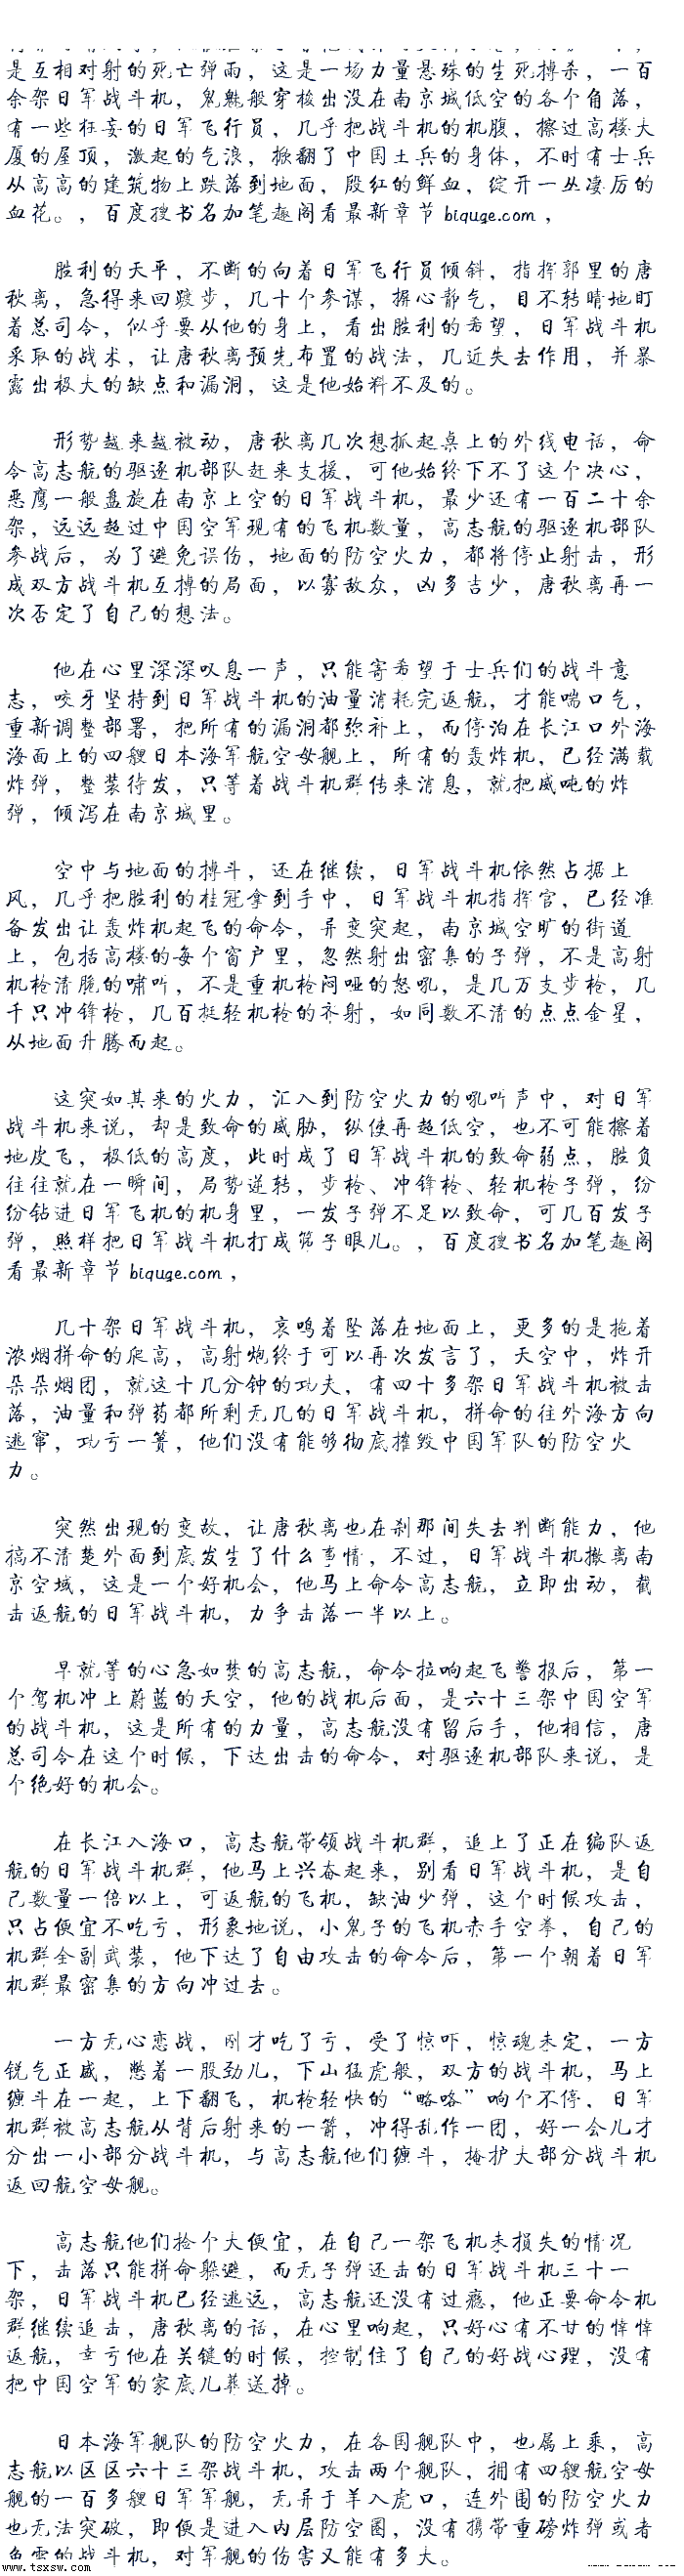 是互相对射的死亡弹雨，这是一场力量悬殊的生死搏杀，一百
余架日军战斗机，鬼魅般穿梭出没在南京城低空的各个角落，
有一些狂妄的日军飞行员，几乎把战斗机的机腹，擦过高楼大
厦的屋顶，激起的气浪，掀翻了中国士兵的身体，不时有士兵
从高高的建筑物上跌落到地面，殷红的鲜血，绽开一丛凄厉的
血花。，百度搜书名加笔趣阁看最新章节biquge.com，
胜利的天平，不断的向着日军飞行员倾斜，指挥部里的唐
秋离，急得来回踱步，几十个参谋，摒心静气，目不转睛地盯
着总司令，似乎要从他的身上，看出胜利的希望，日军战斗机
采取的战术，让唐秋离预先布置的战法，几近失去作用，并暴
露出极大的缺点和漏洞，这是他始料不及的。
形势越来越被动，唐秋离几次想抓起桌上的外线电话，命
令高志航的驱逐机部队赶来支援，可他始终下不了这个决心，
恶鹰一般盘旋在南京上空的日军战斗机，最少还有一百二十余
架，远远超过中国空军现有的飞机数量，高志航的驱逐机部队
参战后，为了避免误伤，地面的防空火力，都将停止射击，形
成双方战斗机互搏的局面，以寡敌众，凶多吉少，唐秋离再一
次否定了自己的想法。
他在心里深深叹息一声，只能寄希望于士兵们的战斗意
志，咬牙坚持到日军战斗机的油量消耗完返航，才能喘口气，
重新调整部署，把所有的漏洞都弥补上，而停泊在长江口外海
海面上的四艘日本海军航空母舰上，所有的轰炸机，已经满载
炸弹，整装待发，只等着战斗机群传来消息，就把成吨的炸
弹，倾泻在南京城里。
空中与地面的搏斗，还在继续，日军战斗机依然占据上
风，几乎把胜利的桂冠拿到手中，日军战斗机指挥官，已经准
备发出让轰炸机起飞的命令，异变突起，南京城空旷的街道
上，包括高楼的每个窗户里，忽然射出密集的子弹，不是高射
机枪清脆的啸叫，不是重机枪闷哑的怒吼，是几万支步枪，几
千只冲锋枪，几百挺轻机枪的齐射，如同数不清的点点金星，
从地面升腾而起。
这突如其来的火力，汇入到防空火力的吼叫声中，对日军
战斗机来说，却是致命的威胁，纵使再超低空，也不可能擦着
地皮飞，极低的高度，此时成了日军战斗机的致命弱点，胜负
往往就在一瞬间，局势逆转，步枪、冲锋枪、轻机枪子弹，纷
纷钻进日军飞机的机身里，一发子弹不足以致命，可几百发子
弹，照样把日军战斗机打成筛子眼儿。，百度搜书名加笔趣阁
看最新章节biquge.com，
几十架日军战斗机，哀鸣着坠落在地面上，更多的是拖着
浓烟拼命的爬高，高射炮终于可以再次发言了，天空中，炸开
朵朵烟团，就这十几分钟的功夫，有四十多架日军战斗机被击
落，油量和弹药都所剩无几的日军战斗机，拼命的往外海方向
逃窜，功亏一篑，他们没有能够彻底摧毁中国军队的防空火
力。
突然出现的变故，让唐秋离也在刹那间失去判断能力，他
搞不清楚外面到底发生了什么事情，不过，日军战斗机撤离南
京空域，这是一个好机会，他马上命令高志航，立即出动，截
击返航的日军战斗机，力争击落一半以上。
早就等的心急如焚的高志航，命令拉响起飞警报后，第一
个驾机冲上蔚蓝的天空，他的战机后面，是六十三架中国空军
的战斗机，这是所有的力量，高志航没有留后手，他相信，唐
总司令在这个时候，下达出击的命令，对驱逐机部队来说，是
个绝好的机会。
在长江入海口，高志航带领战斗机群，追上了正在编队返
航的日军战斗机群，他马上兴奋起来，别看日军战斗机，是自
己数量一倍以上，可返航的飞机，缺油少弹，这个时候攻击，
只占便宜不吃亏，形象地说，小鬼子的飞机赤手空拳，自己的
机群全副武装，他下达了自由攻击的命令后，第一个朝着日军
机群最密集的方向冲过去。
一方无心恋战，刚才吃了亏，受了惊吓，惊魂未定，一方
锐气正盛，憋着一股劲儿，下山猛虎般，双方的战斗机，马上
缠斗在一起，上下翻飞，机枪轻快的“咯咯”响个不停，日军
机群被高志航从背后射来的一箭，冲得乱作一团，好一会儿才
分出一小部分战斗机，与高志航他们缠斗，掩护大部分战斗机
返回航空母舰。
高志航他们捡个大便宜，在自己一架飞机未损失的情况
下，击落只能拼命躲避，而无子弹还击的日军战斗机三十一
架，日军战斗机已经逃远，高志航还没有过瘾，他正要命令机
群继续追击，唐秋离的话，在心里响起，只好心有不甘的悻悻
返航，幸亏他在关键的时候，控制住了自己的好战心理，没有
把中国空军的家底儿葬送掉。
日本海军舰队的防空火力，在各国舰队中，也属上乘，高
志航以区区六十三架战斗机，攻击两个舰队，拥有四艘航空母
舰的一百多艘日军军舰，无异于羊入虎口，连外围的防空火力
也无法突破，即便是进入内层防空圈，没有携带重磅炸弹或者
鱼雷的战斗机，对军舰的伤害又能有多大。
www.tsxsw.com